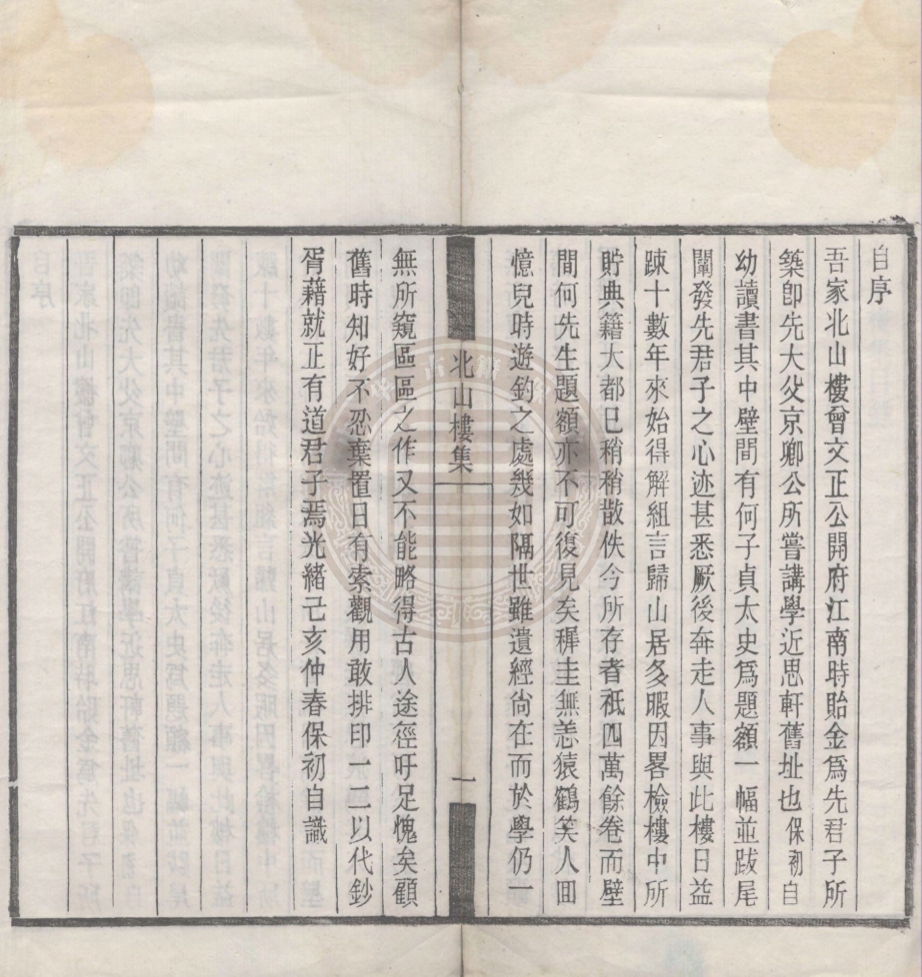 自序
吾家北山樓曾文正公開府江南時貽金爲先君子所
築卽先大父京卿公所嘗講學近思軒舊址也保初自
幼讀書其中壁間有何子貞太史爲題額一幅並跋尾
闡發先君子之心迹甚悉厥後奔走人事與此樓日益
踈十數年來始得解組言歸山居多暇因畧檢樓中所
貯典籍大都已稍稍散佚今所存者祇四萬餘卷而壁
間何先生題額亦不可復見矣穉圭無恙猿鶴笑人回
憶兒時遊釣之處幾如隔世雖遺經尙在而於學仍一
北山樓集
一
無所窺區區之作又不能略得古人途徑吁足愧矣顧
舊時知好不忍棄置日有索觀用敢排印一二以代鈔
胥藉就正有道君子焉光緒己亥仲春保初自識